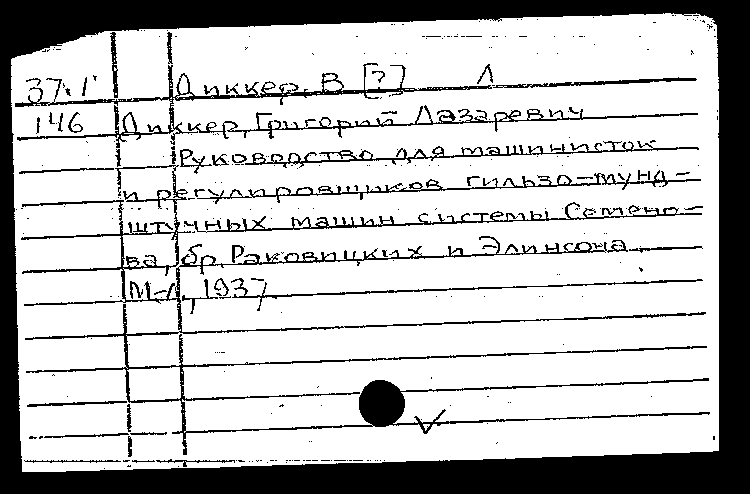 37.1 Диккер, В [?] Л
146 Диккер, Григорий Лазаревич
Руководство для машинисток
и регулировщиков гильзо-мунд-
штучных машин системы Семено-
ва, бр. Раковицких и Элинсона.
М-Л., 1937.